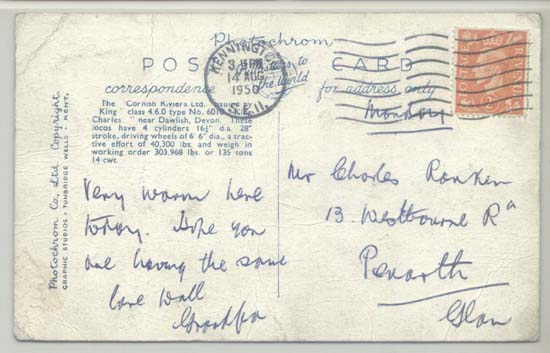 Photochrom
POST CARD
Publishers to
the World
correspondence
for address only
KENNINGTON
3 PM
14 AUG
1950
S.E.11.
POSTAGE REVENUE
Monday
The Cornish Riviera Ltd. by
King class 4.6.0 type No. 6010
Charles" near Dawlish, Devon. These
locos have 4 cylinders 16¼" dia. 28"
stroke, driving wheels of 6' 6" dia., a trac-
tive effort of 40,300 lbs: and weigh in
working order 303,968 lbs. or 135 tons
14 cwt
Photochrom Co., Ltd. Copyright
GRAPHIC STUDIOS • TUNBRIDGE WELLS • KENT.
Very warm here
today. Hope you
are having the same
love
Grandpa
Mr Charles Ranken
13. Westbourne Rd
Penarth
Glam